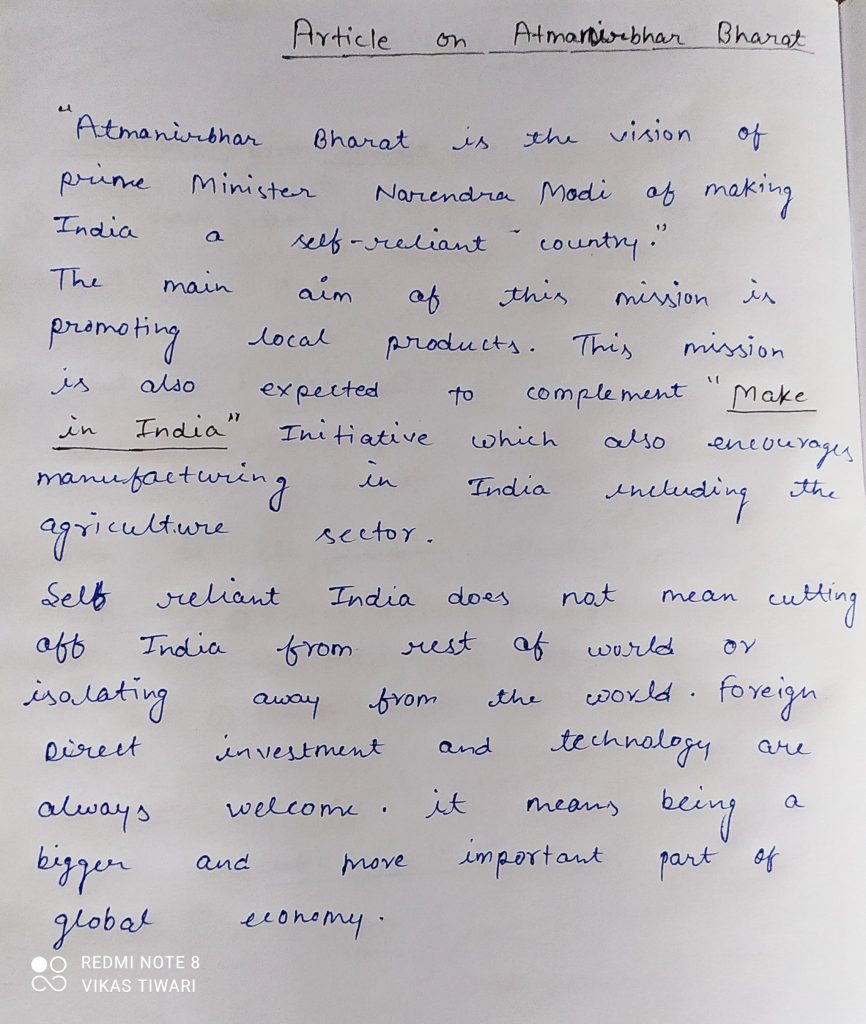 Article on Atmanirbhar Bharat
"Atmanirbhar Bharat is the vision of
prime Minister Narendra Modi of making
India a self-reliant country."
The main aim of this mission is
promoting local products. This mission
is also expected to complement "Make
in India" Initiative which also encourages
manufacturing in India including the
agriculture sector.
Self reliant India does not mean cutting
off India from rest of world or
isolating away from the world. Foreign
Direct investment and technology are
always welcome. it means being a
bigger and more important part of
global economy.
REDMI NOTE 8
VIKAS TIWARI